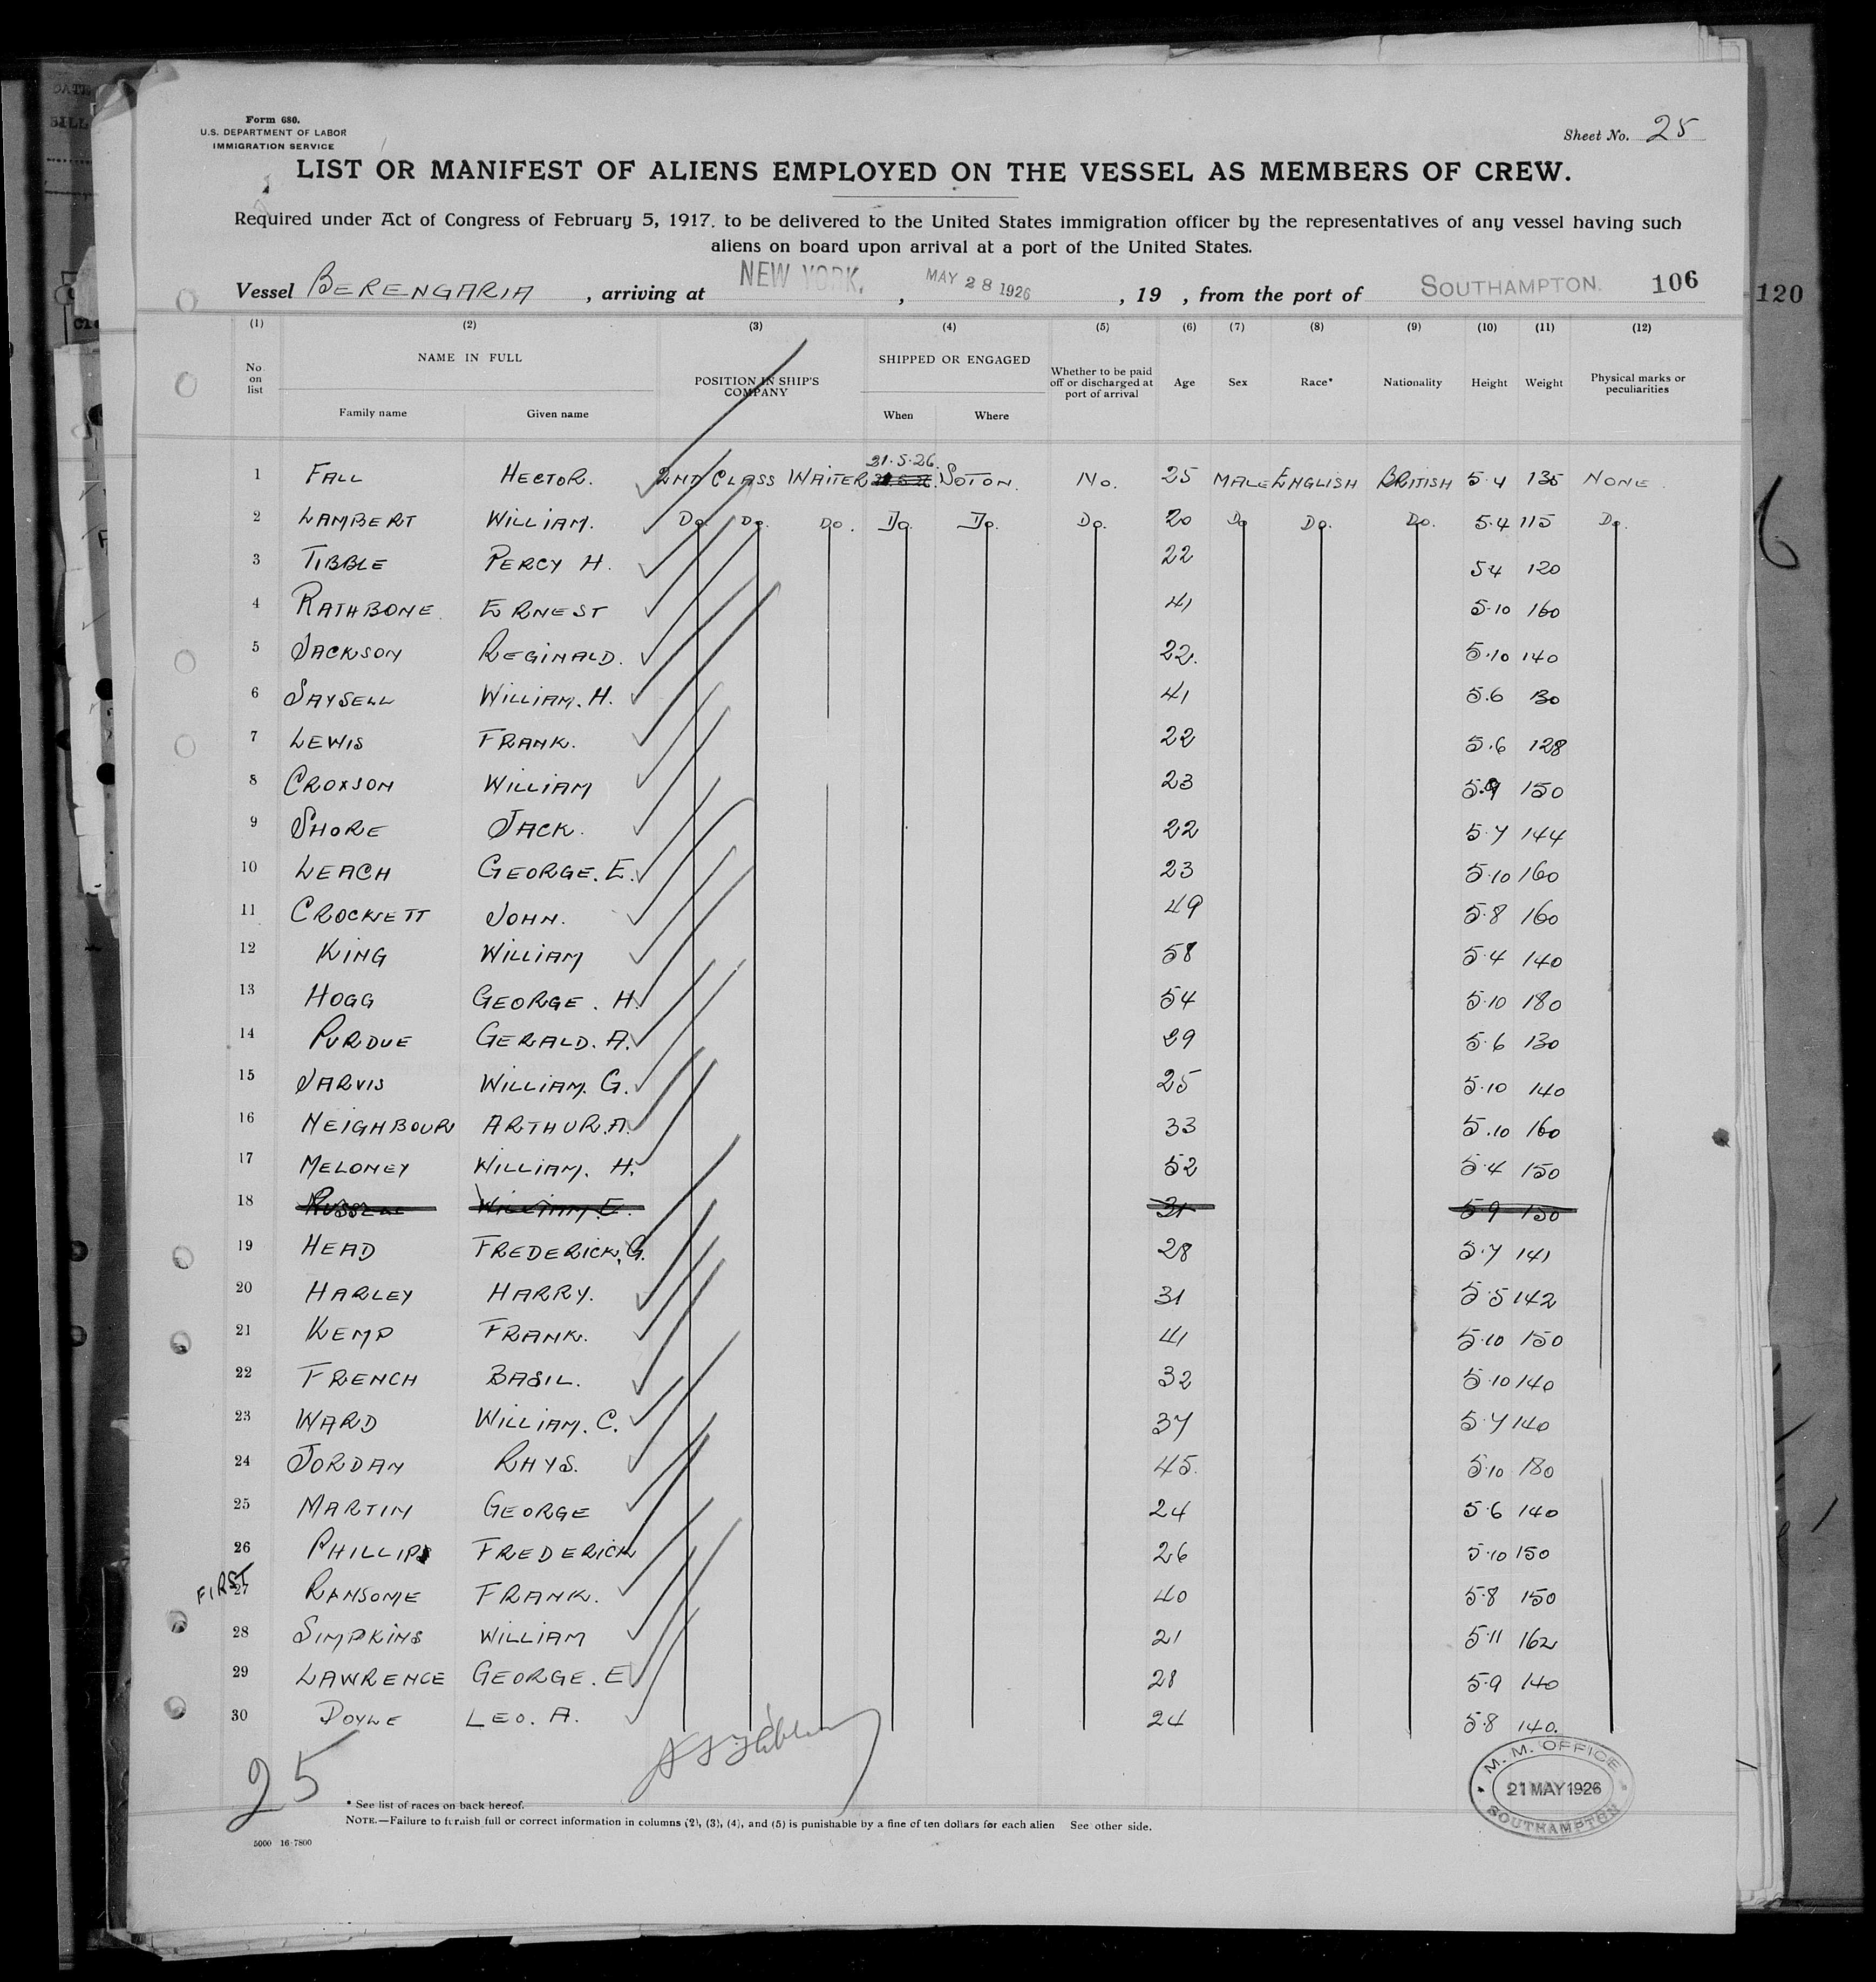 Form 680.
U.S. DEPARTMENT OF LABOR
IMMIGRATION SERVICE
Sheet No. 25
LIST OR MANIFEST OF ALIENS EMPLOYED ON THE VESSEL AS MEMBERS OF CREW.
Required under Act of Congress of February 5, 1917, to be delivered to the United States immigration officer by the representatives of any vessel having such
aliens on board upon arrival at a port of the United States.
Vessel BERENGARIA, arriving at NEW YORK, MAY 28 1926, 19 , from the port of SOUTHAMPTON. 106
120
(1) (2) (3) (4) (5) (6) (7) (8) (9) (10) (11) (12)
No. on list NAME IN FULL Family name Given name POSITION IN SHIP'S COMPANY SHIPPED OR ENGAGED When Where Whether to be paid off or discharged at port of arrival Age Sex Race* Nationality Height Weight Physical marks or peculiarities
1 FALL HECTOR. 2ND CLASS WAITER 21.5.26. SOTON. NO. 25 MALE ENGLISH BRITISH 5.4 135 NONE.
2 LAMBERT WILLIAM. Do. Do. Do. Do. Do. Do. 20 Do Do. Do. 5.4 115 Do.
3 TIBBLE PERCY H. 22 5 4 120
4 RATHBONE. ERNEST 41 5.10 160
5 JACKSON REGINALD. 22. 5.10 140
6 SAYSELL WILLIAM. H. 41 5.6 130
7 LEWIS FRANK. 22 5.6 128
8 CROXSON WILLIAM 23 5.9 150
9 SHORE JACK. 22 5.7 144
10 LEACH GEORGE. E. 23 5.10 160
11 CROCKETT JOHN. 49 5.8 160
12 KING WILLIAM 58 5.4 140
13 HOGG GEORGE. H. 54 5.10 180
14 PURDUE GERALD. A. 29 5.6 130
15 JARVIS WILLIAM. G. 25 5.10 140
16 NEIGHBOUR ARTHUR. A. 33 5.10 160
17 MELONEY WILLIAM. H. 52 5.4 150
18 RUSSELL WILLIAM. E. 31 5 9 150
19 HEAD FREDERICK. G. 28 5.7 141
20 HARLEY HARRY. 31 5.5 142
21 KEMP FRANK. 41 5.10 150
22 FRENCH BASIL. 32 5.10 140
23 WARD WILLIAM. C. 37 5.7 140
24 JORDAN RHYS. 45. 5.10 180
25 MARTIN GEORGE 24 5.6 140
26 PHILLIPS FREDERICK 26 5.10 150
FIRST
27 RANSOME FRANK. 40 5.8 150
28 SIMPKINS WILLIAM 21 5.11 162
29 LAWRENCE GEORGE. E 28 5.9 140
30 DOYLE LEO. A. 24 5.8 140.
25
M. M. OFFICE
21 MAY 1926
SOUTHAMPTON
* See list of races on back hereof.
NOTE.—Failure to furnish full or correct information in columns (2), (3), (4), and (5) is punishable by a fine of ten dollars for each alien See other side.
5000 16-7800